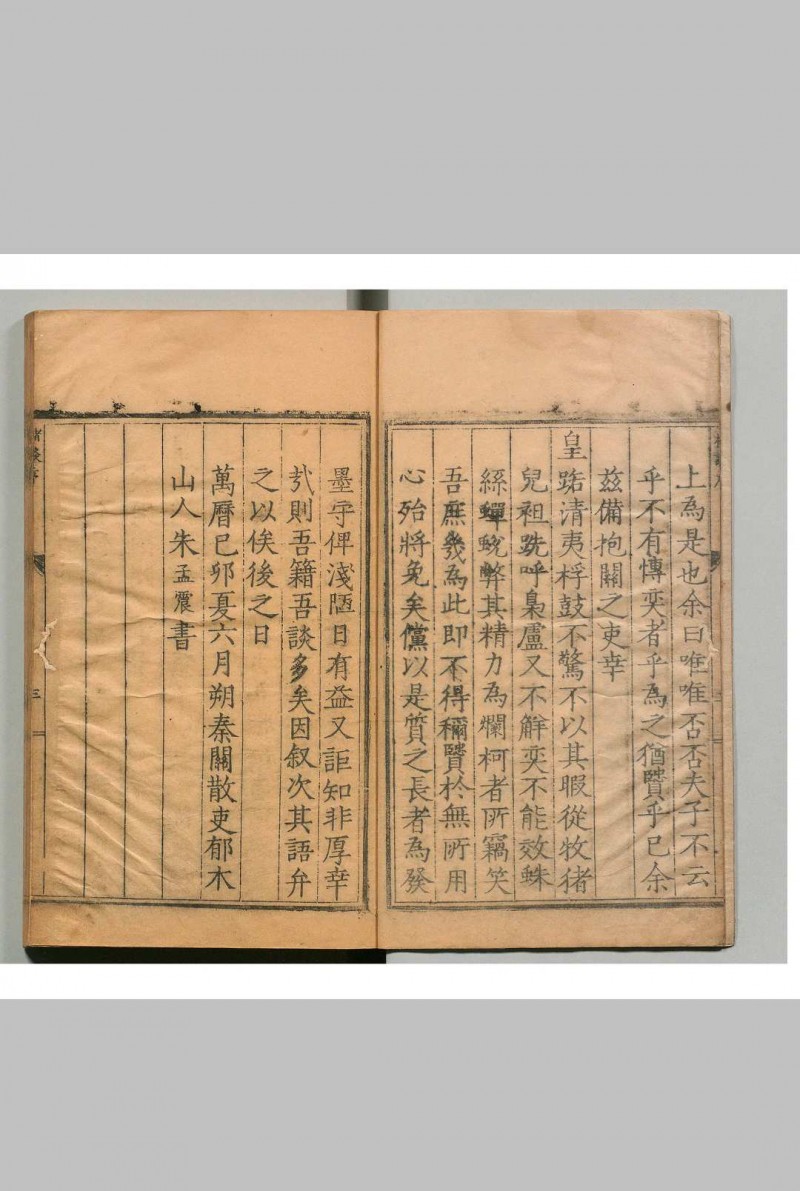 上為是也余曰唯唯否否夫子不云
乎不有博奕者乎為之猶賢乎已余
兹備抱關之吏幸
皇路清夷桴鼓不驚不以其暇從牧猪
兒袒跣呼梟盧又不解奕不能效蛛
絲蟬蛻弊其精力為爛柯者所竊笑
吾庶幾為此即不得稱賢於無所用
心殆將免矣儻以是質之長者為發
墨守俾淺陋日有益又詎知非厚幸
㢤則吾籍吾談多矣因叙次其語弁
之以俟後之日
萬曆己卯夏六月朔秦關散吏郁木
山人朱孟震書
三